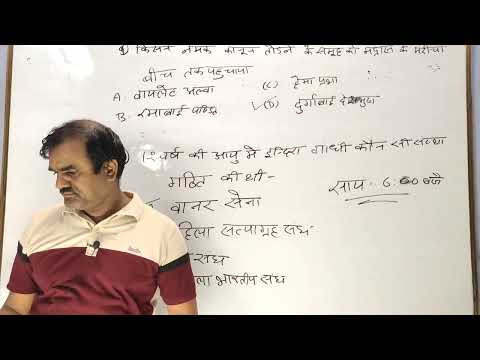 किसने नमक कानून तोड़ने के समूह को मद्रास के मरीना
बीच तक पहुंचाया
A. वायलेट अल्वा (C) हेमा प्रभा
B. रमाबाई (D) दुर्गाबाई देशमुख
12 वर्ष की आयु में इन्दिरा गांधी कौन सी संस्था
गठित की थी -
वानर सेना
सत्याग्रह संघ
संघ
भारतीय संघ
साय. 6:00 बजे